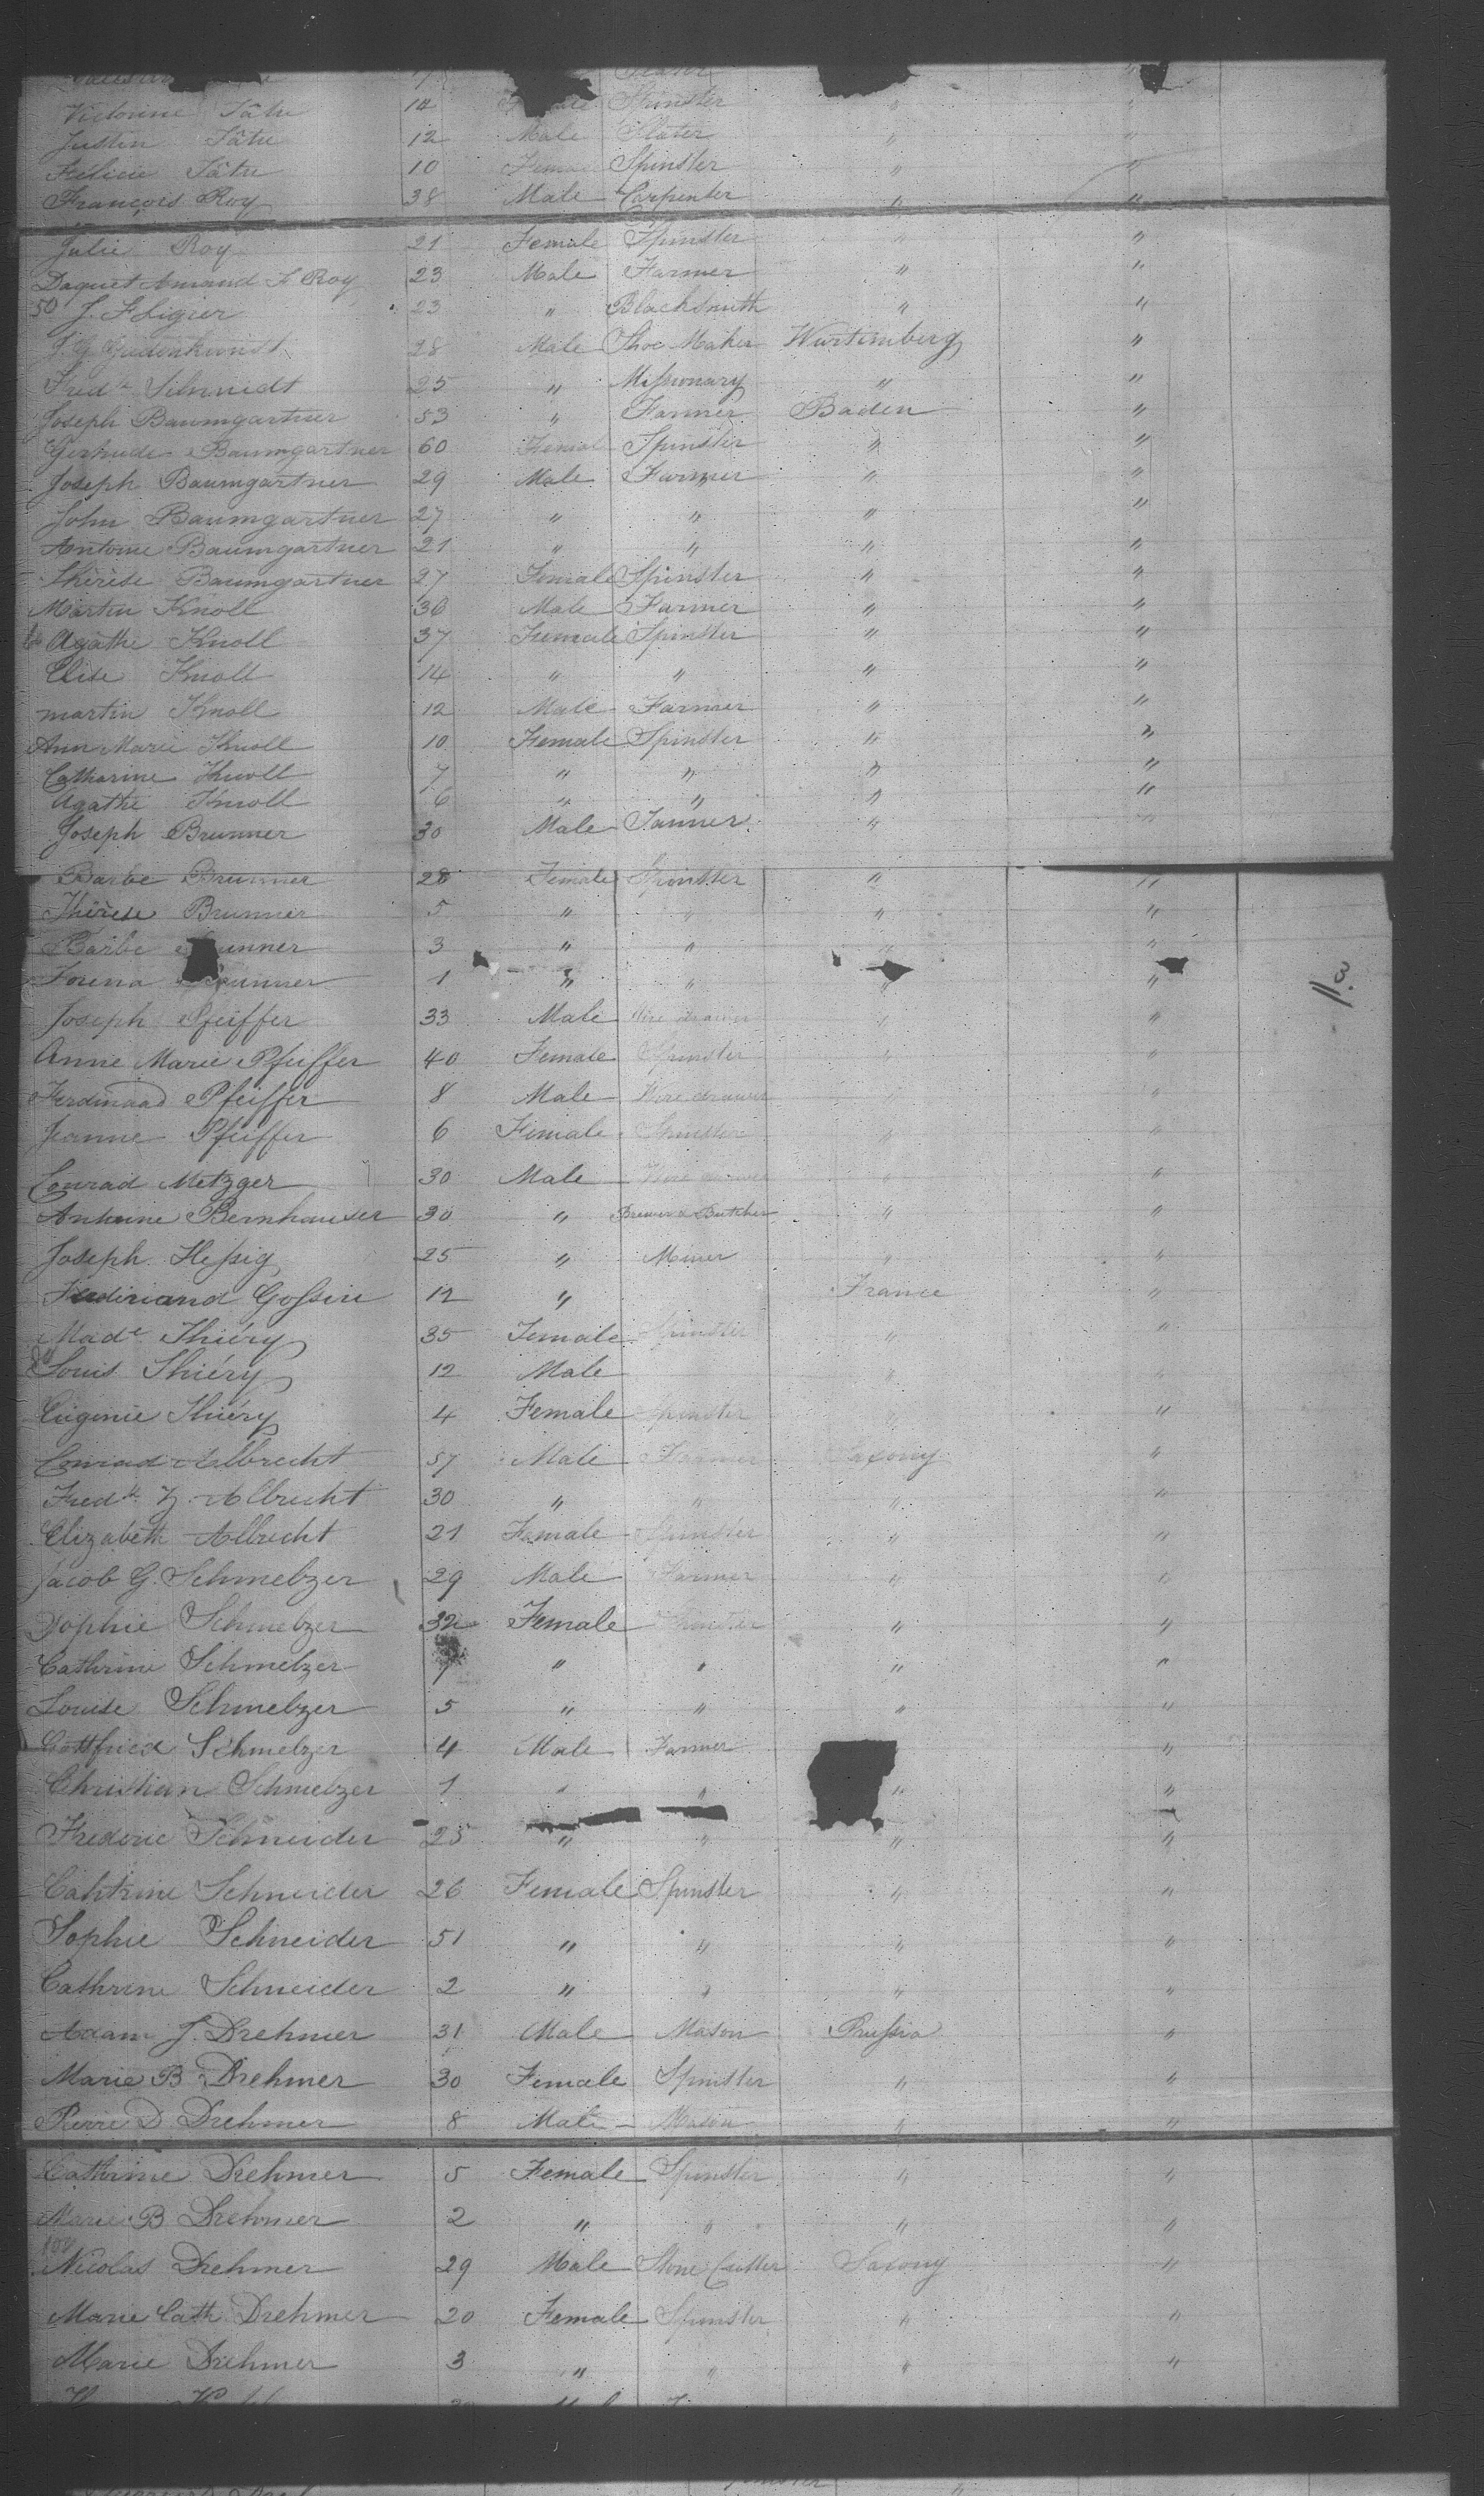 Victorine Tâtu 14 Spinster "
Justin Tâtu 12 Male Slater " "
Félicie Tâtu 10 Female Spinster " "
François Roy 38 Male Carpenter " "
Julie Roy 21 Female Spinster " "
Daquet Amand F Roy 23 Male Farmer " "
50 J. F Ligier 23 " Blacksmith " "
J. G. Gudenkunst 28 Male Shoe Maker Wurtemberg "
Fredk Schmidt 25 " Missionary " "
Joseph Baumgartner 53 " Farmer Baden "
Gertrude Baumgartner 60 Female Spinster " "
Joseph Baumgartner 29 Male Farmer " "
John Baumgartner 27 " " " "
Antoine Baumgartner 21 " " " "
Thérèse Baumgartner 27 Female Spinster " "
Martin Knoll 36 Male Farmer " "
Agathe Knoll 37 Female Spinster " "
Elise Knoll 14 " " " "
martin Knoll 12 Male Farmer " "
Ann Marie Knoll 10 Female Spinster " "
Catharine Knoll 7 " " " "
Agathe Knoll 6 " " " "
Joseph Brunner 30 Male Tanner " "
Barbe Brunner 28 Female Spinster " "
Thérèse Brunner 5 " " " "
Barbe unner 3 " " " "
unner 1 " " " "
3
Joseph Pfeiffer 33 Male Wire drawer " "
Anne Marie Pfeiffer 40 Female Spinster " "
Ferdinaad Pfeiffer 8 Male Wire drawer " "
Jeanne Pfeiffer 6 Female Spinster " "
Conrad Metzger 30 Male Wire drawer " "
Antoine Bernhauser 30 " Brewer & Butcher " "
Joseph Hessig 25 " Miner " "
Ferdinand Gossin 12 " France "
Made Thiéry 35 Female Spinster " "
Louis Thiéry 12 Male " "
Eugenie Thiéry 4 Female Spinster " "
Conrad Albrecht 57 Male Farmer Saxony "
Fredk Z. Albrecht 30 " " " "
Elizabeth Albrecht 21 Female Spinster " "
Jacob G. Schmelzer 29 Male Farmer " "
Sophie Schmelzer 32 Female Spinster " "
Cathrine Schmelzer 7 " " " "
Louise Schmelzer 5 " " " "
Gottfried Schmelzer 4 Male Farmer "
Christian Schmelzer 1 " " " "
Frederic Schneider 25 " " " "
Cahtrine Schneider 26 Female Spinster " "
Sophie Schneider 51 " " " "
Cathrine Schneider 2 " " " "
Adam J. Drehmer 31 Male Mason Prussia "
Marie B Drehmer 30 Female Spinster " "
Pierre D Drehmer 8 Male Mason " "
Cathrine Drehmer 5 Female Spinster " "
Marie B Drehmer 2 " " " "
100
Nicolas Drehmer 29 Male Stone Cutter Saxony "
Marie Cath Drehmer 20 Female Spinster " "
Marie Drehmer 3 " " " "